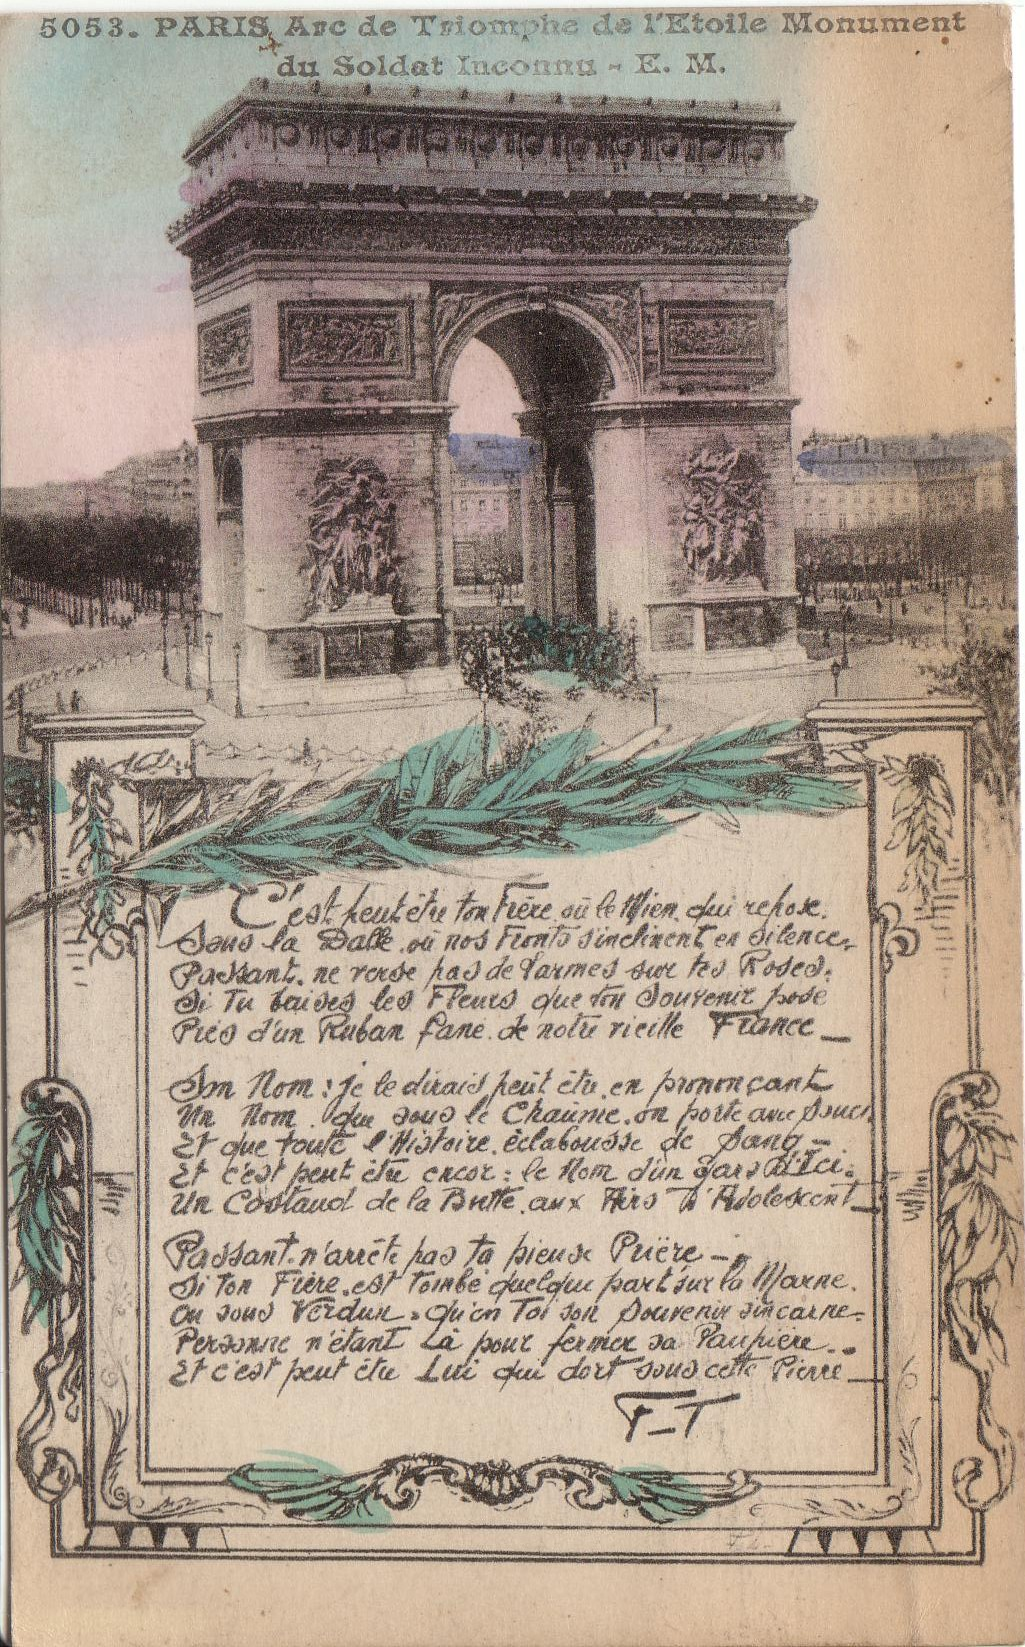 5053. PARIS, Arc de Triomphe de l'Etoile Monument
du Soldat Inconnu - E. M.
C'est peut être ton Frère où le Mien qui repose.
Sous la Dalle où nos Fronts s'inclinent en silence.
Passant. ne verse pas de larmes sur tes Roses.
Si Tu baises les Fleurs que ton Souvenir pose
Près d'un Ruban fane de notre vieille France _
Son Nom : je le dirais peut être en prononçant
Un Nom que sous le Chaume on porte avec Souci
Et que toute l'Histoire éclabousse de Sang -
Et c'est peut être encor : le Nom d'un gars D'Ici.
Un Costaud de la Butte aux Airs D'Adolescent _
Passant n'arrête pas ta pieuse Prière -
Si ton Frère est tombé quelque part sur la Marne.
Ou sous Verdun. qu'en Toi son Souvenir s'incarne.
Personne n'étant Là pour fermer sa Paupière..
Et c'est peut être Lui qui dort sous cette Pierre _
F_T